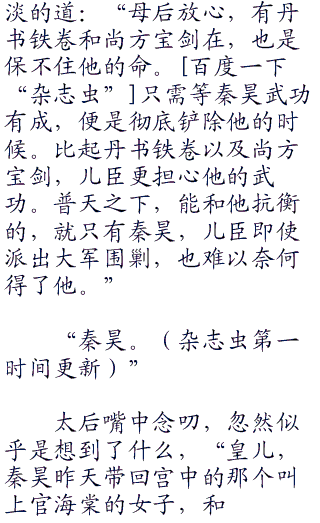 淡的道：“母后放心，有丹
书铁卷和尚方宝剑在，也是
保不住他的命。[百度一下
“杂志虫”]只需等秦昊武功
有成，便是彻底铲除他的时
候。比起丹书铁卷以及尚方
宝剑，儿臣更担心他的武
功。普天之下，能和他抗衡
的，就只有秦昊，儿臣即使
派出大军围剿，也难以奈何
得了他。”
“秦昊。（杂志虫第一
时间更新）”
太后嘴中念叨，忽然似
乎是想到了什么，“皇儿，
秦昊昨天带回宫中的那个叫
上官海棠的女子，和